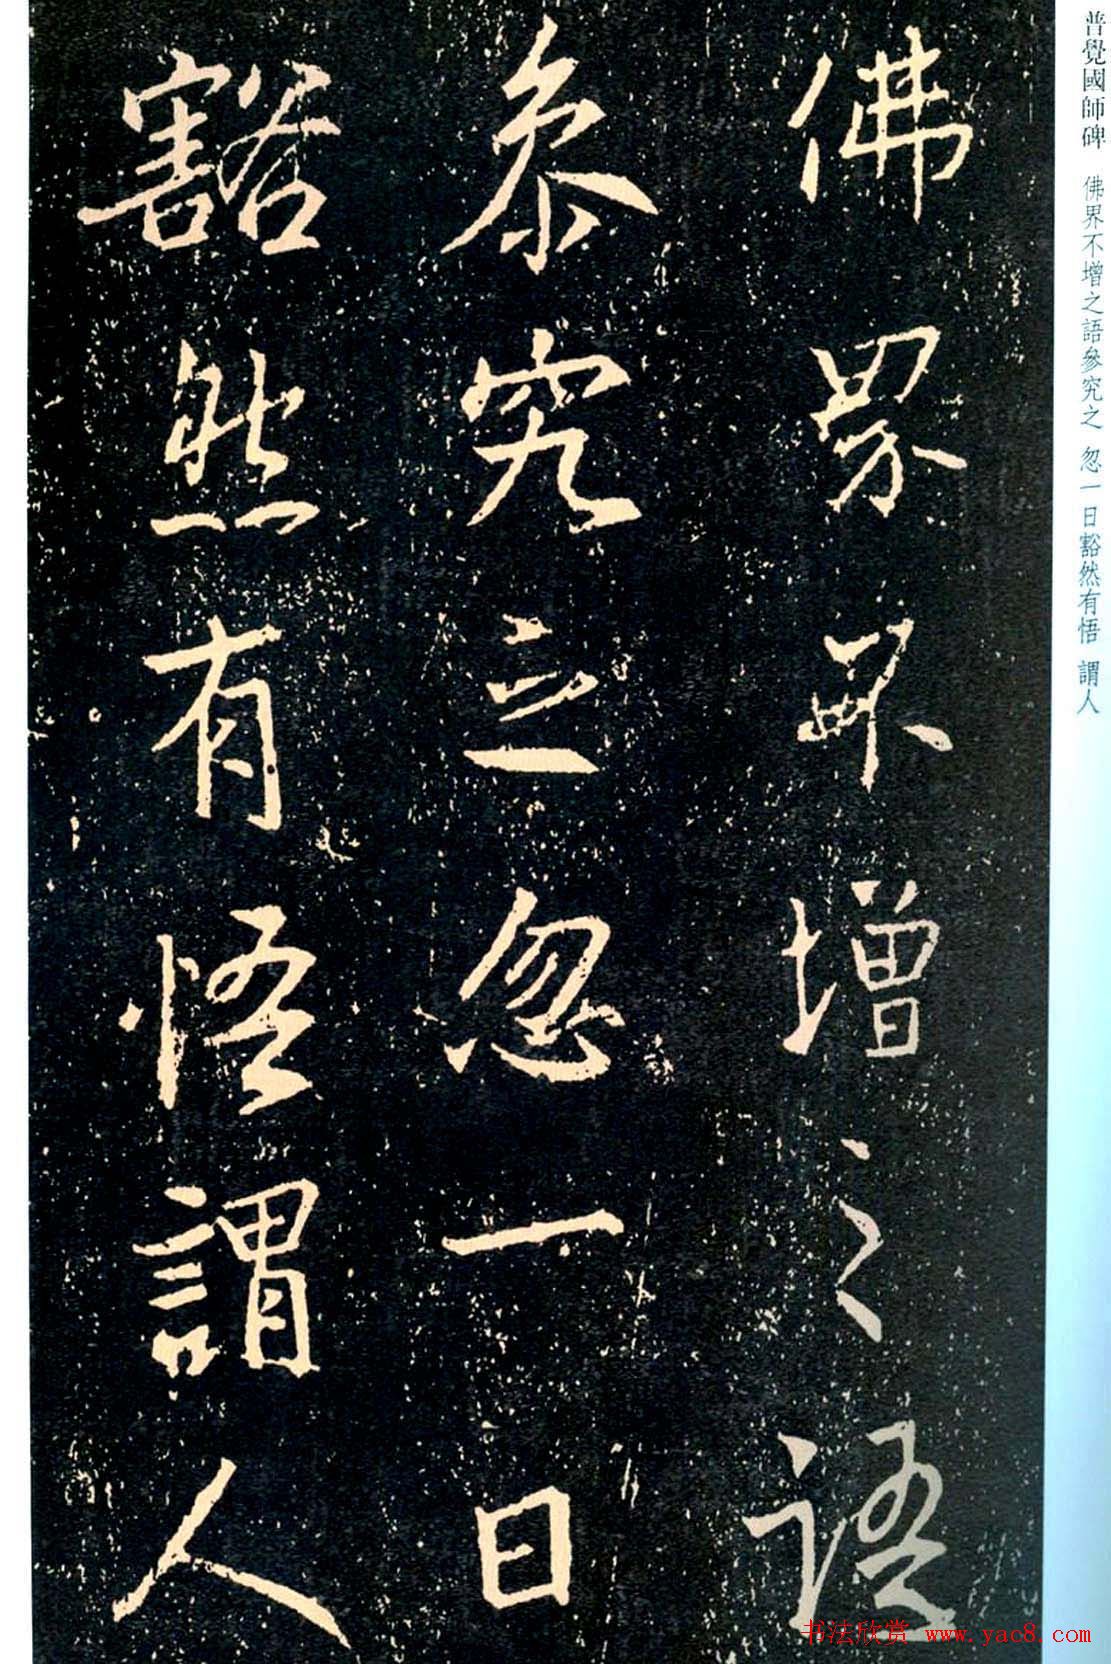 普覺國師碑 佛界不增之語參究之 忽一日豁然有悟 謂人
佛界不增之語
參究之忽一日
豁然有悟謂人
书法欣赏 www.yac8.com